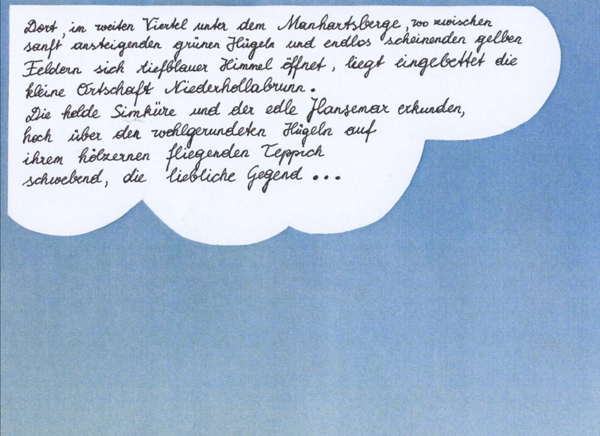 Dort, im weiten Viertel unter dem Manhartsberge, wo zwischen
sanft ansteigenden grünen Hügeln und endlos scheinenden gelben
Feldern sich tiefblauer Himmel öffnet, liegt eingebettet die
kleine Ortschaft Niederhollabrunn.
Die holde Simküre und der edle Hansemar erkunden,
hoch über den wohlgerundeten Hügeln auf
ihrem hölzernen fliegenden Teppich
schwebend, die liebliche Gegend ...